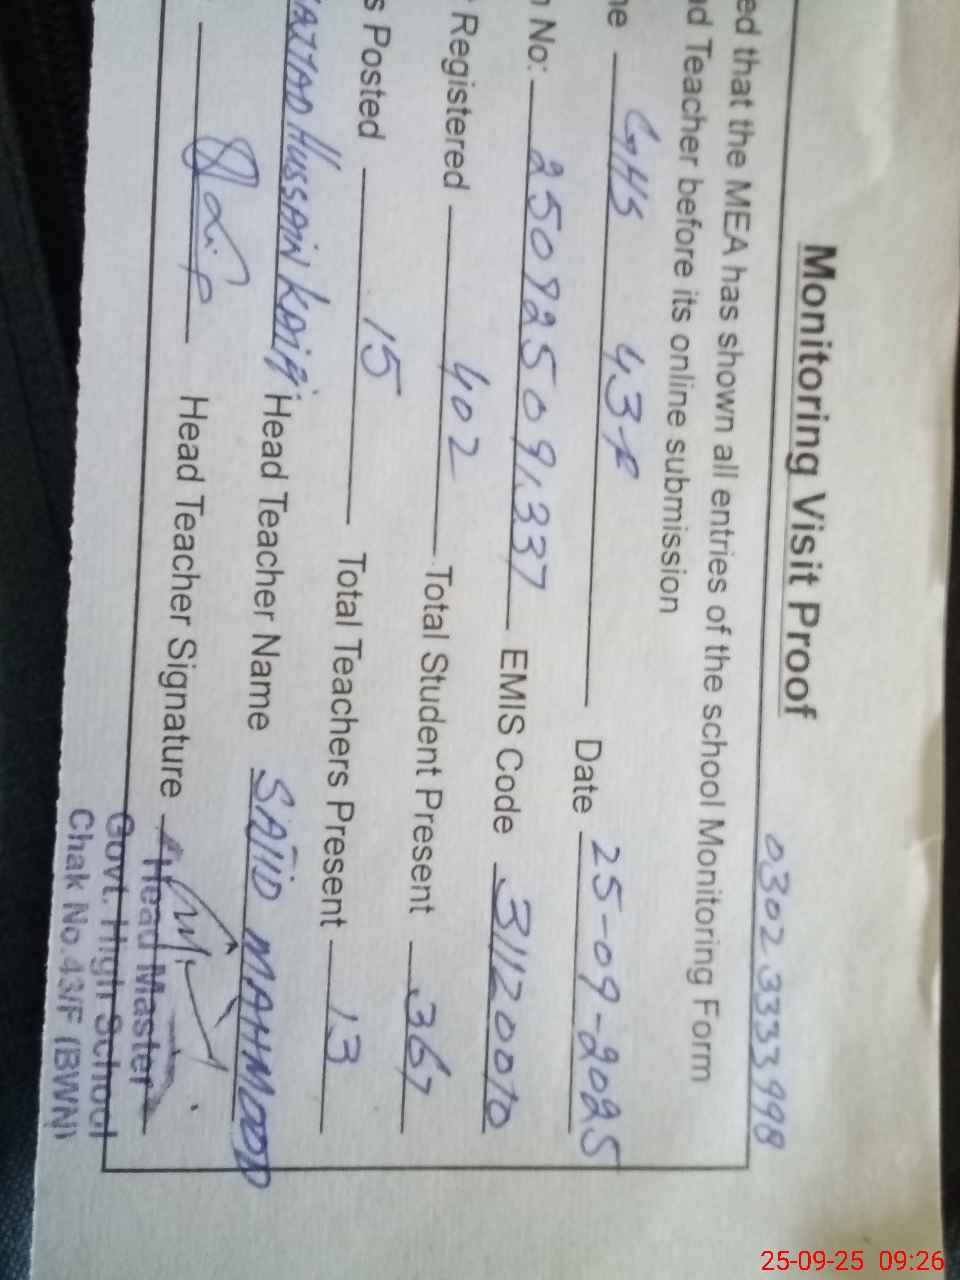 Monitoring Visit Proof
03023333998
ed that the MEA has shown all entries of the school Monitoring Form
d Teacher before its online submission
ne GHS 43 Date 25-09-2025
n No: 250925091337 EMIS Code 31120070
Registered 402 Total Student Present 367
s Posted 15 Total Teachers Present 13
HUSSAIN Head Teacher Name SAJID MAHMOOD
Head Teacher Signature
Head Master
Govt. High School
Chak No.43/F (BWN)
25-09-25 09:26